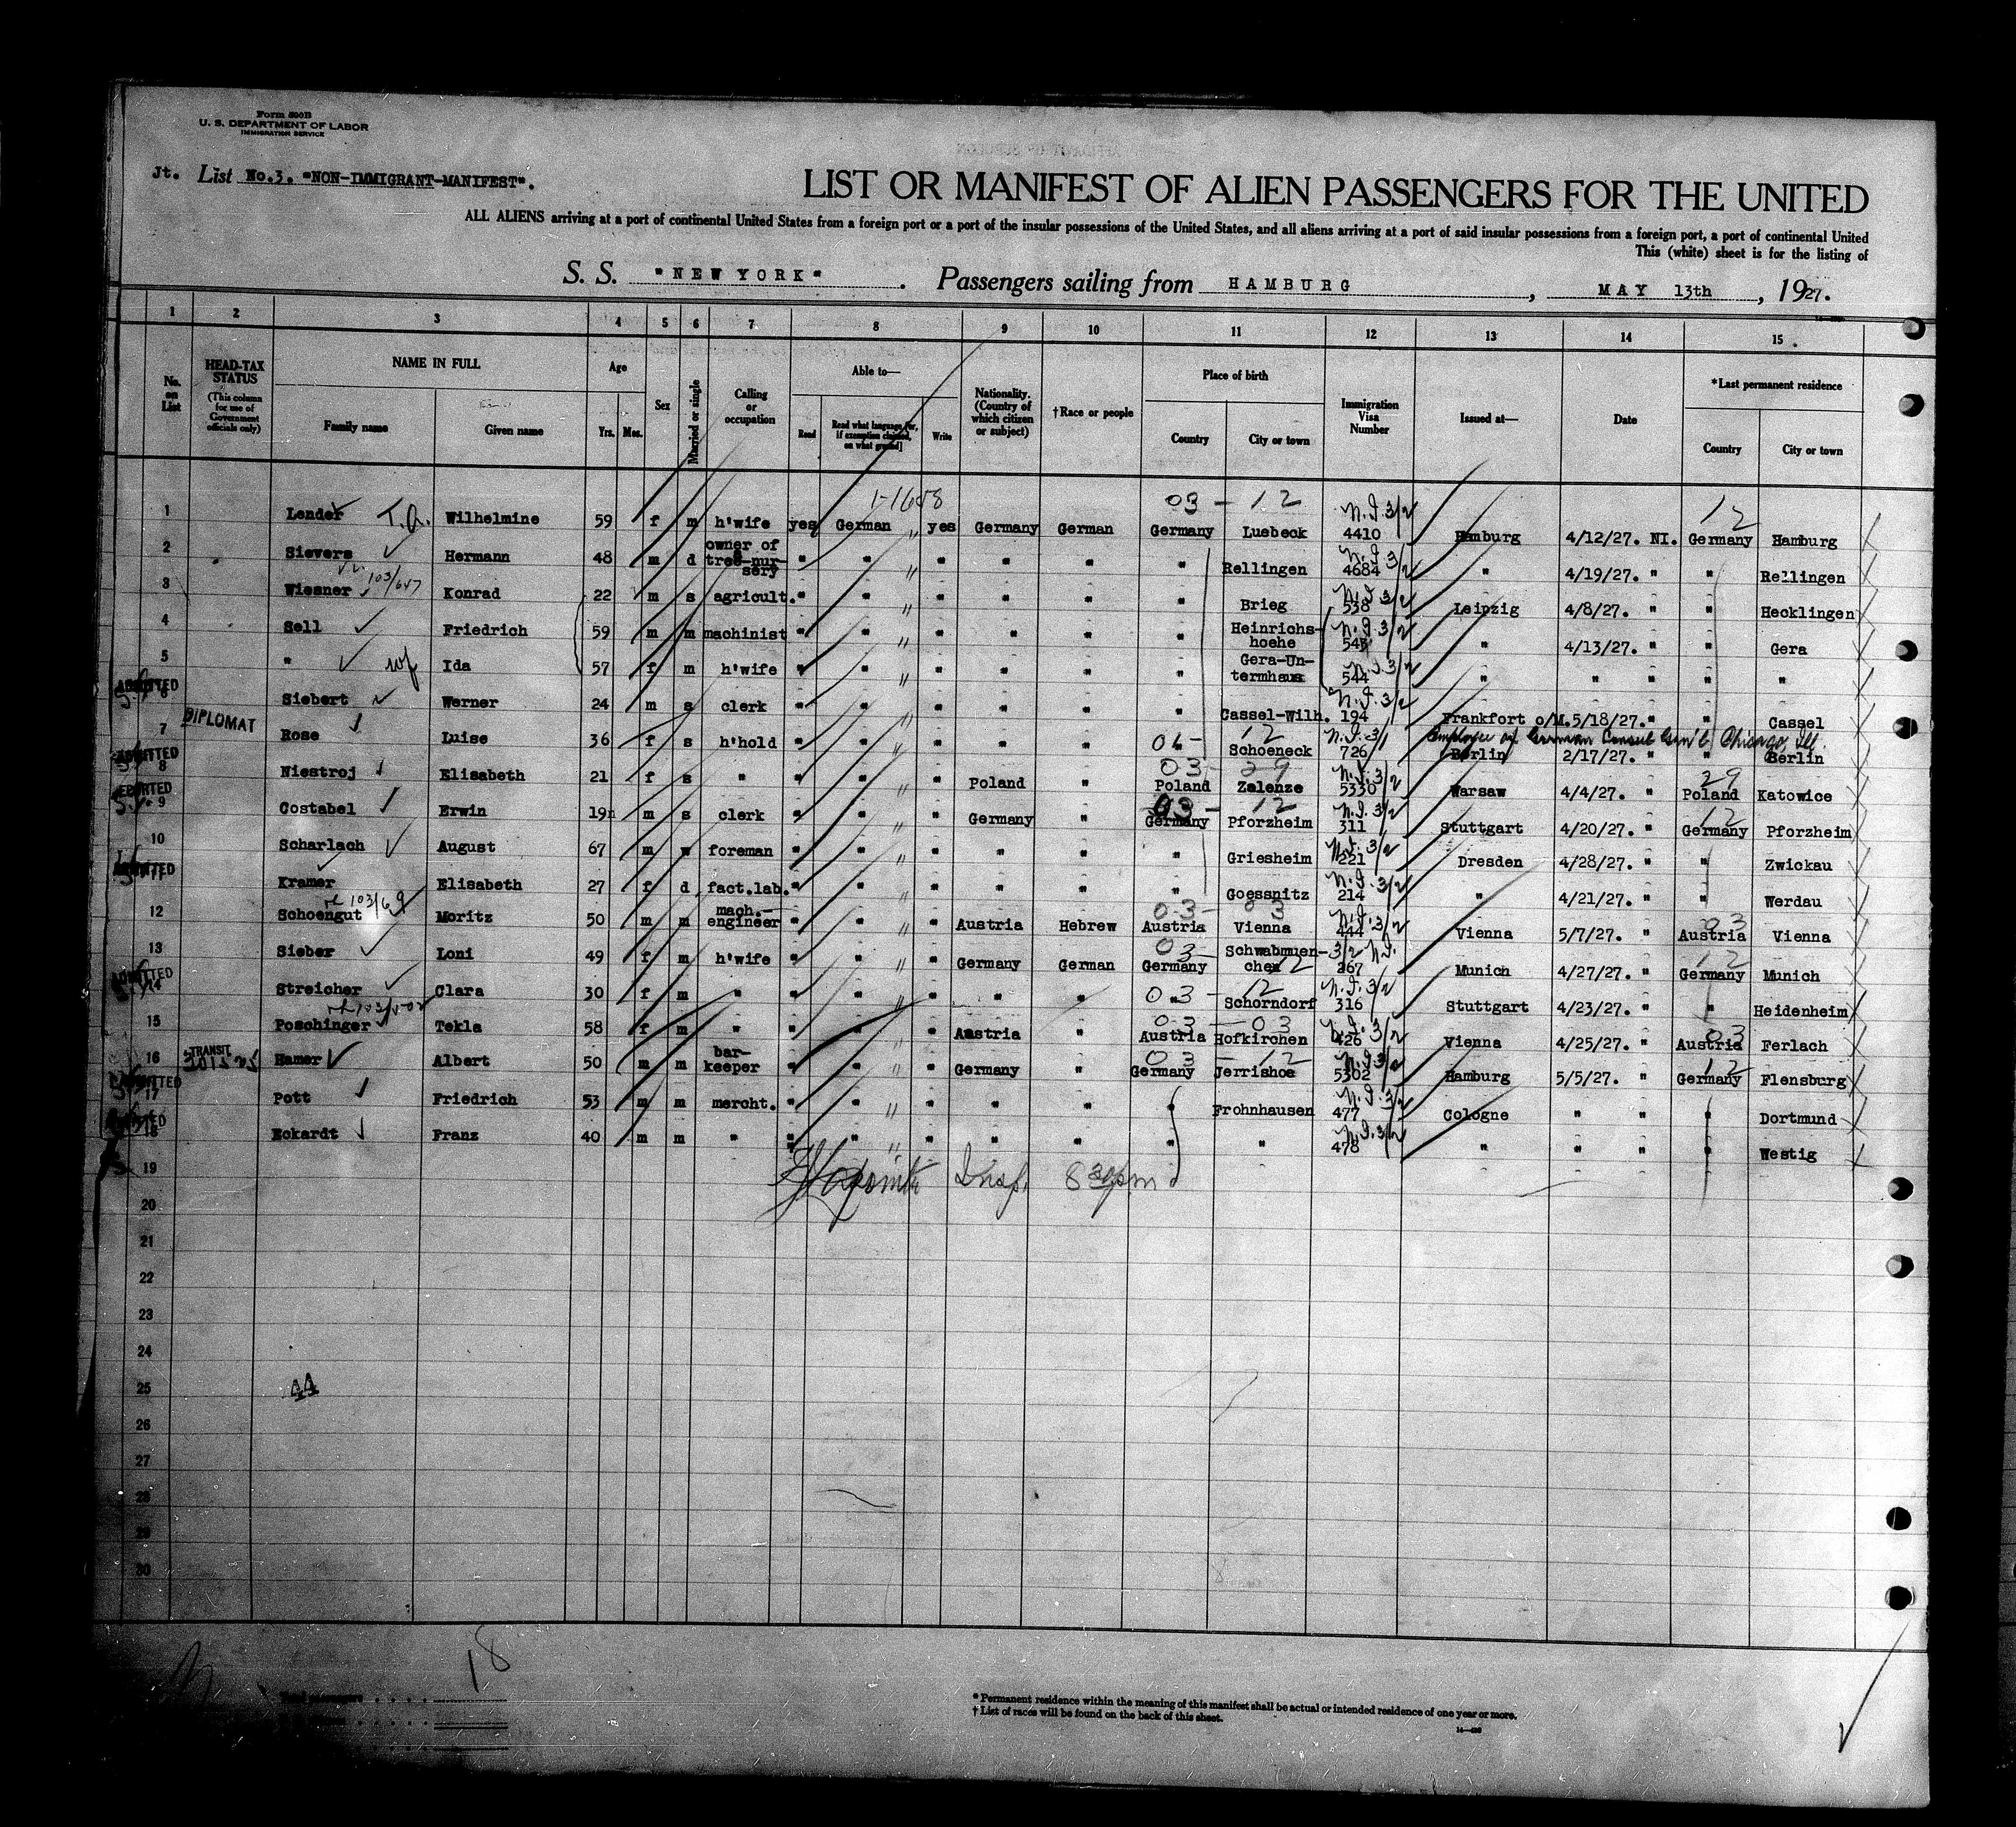 Form 500B
U. S. DEPARTMENT OF LABOR
IMMIGRATION SERVICE
Jt. List No.3. "NON-IMMIGRANT-MANIFEST".
LIST OR MANIFEST OF ALIEN PASSENGERS FOR THE UNITED
ALL ALIENS arriving at a port of continental United States from a foreign port or a port of the insular possessions of the United States, and all aliens arriving at a port of said insular possessions from a foreign port, a port of continental United
This (white) sheet is for the listing of
S. S. "NEW YORK". Passengers sailing from HAMBURG, MAY 13th, 1927.
1 2 3 4 5 6 7 8 9 10 11 12 13 14 15
No. on List
HEAD-TAX STATUS (This column for use of Government officials only)
NAME IN FULL Family name Given name
Age Yrs. Mos.
Sex
Married or single
Calling or occupation
Able to— Read Read what language [or, if exemption claimed, on what ground] Write
Nationality. (Country of which citizen or subject)
†Race or people
Place of birth Country City or town
Immigration Visa Number
Issued at—
Date
*Last permanent residence Country City or town
1-1658 03 - 12 N.I. 3/2 12
1 Lender T.A. Wilhelmine 59 f m h'wife yes German yes Germany German Germany Luebeck 4410 Hamburg 4/12/27. NI. Germany Hamburg
2 Sievers Hermann 48 m d owner of tree-nursery " " " " " " Rellingen N.I. 3/2 4684 " 4/19/27. " " Rellingen
3 Wiesner 103/647 Konrad 22 m s agricult. " " " " " " Brieg N.I. 3/2 538 Leipzig 4/8/27. " " Hecklingen
4 Sell Friedrich 59 m m machinist " " " " " " Heinrichs-hoehe N.I. 3/2 545 " 4/13/27. " " Gera
5 " wf Ida 57 f m h'wife " " " " " " Gera-Un-termhaus N.I. 3/2 544 " " " " "
ADMITTED
6 Siebert Werner 24 m s clerk " " " " " " Cassel-Wilh. N.I. 3/2 194 Frankfort o/M. 5/18/27. " " Cassel
DIPLOMAT
Employee of German Consul Gen'l Chicago, Ill.
7 Rose Luise 36 f s h'hold " " " " " " Schoeneck 12 N.I. 3/1 726 Berlin 2/17/27. " " Berlin
ADMITTED
8 Niestroj Elisabeth 21 f s " " " " Poland " 03 - 29 Poland Zalenze N.I. 3/2 5330 Warsaw 4/4/27. " 29 Poland Katowice
9 Costabel Erwin 19n m s clerk " " " Germany " 03 - 12 Germany Pforzheim N.I. 3/2 311 Stuttgart 4/20/27. " 12 Germany Pforzheim
10 Scharlach August 67 m w foreman " " " " " " Griesheim N.I. 3/2 221 Dresden 4/28/27. " " Zwickau
ADMITTED
Kramer Elisabeth 27 f d fact.lab. " " " " " " Goessnitz N.I. 3/2 214 " 4/21/27. " " Werdau
12 Schoengut Moritz 50 m m mach.-engineer " " " Austria Hebrew 03 - 03 Austria Vienna N.I. 3/2 444 Vienna 5/7/27. " 03 Austria Vienna
13 Sieber Loni 49 f m h'wife " " " Germany German 03 - 12 Germany Schwabmuen-chen 3/2 N.I. 267 Munich 4/27/27. " 12 Germany Munich
ADMITTED
14 Streicher Clara 30 f m " " " " " " 03 - 12 " Schorndorf N.I. 3/2 316 Stuttgart 4/23/27. " " Heidenheim
15 Poschinger Tekla 58 f m " " " " Austria " 03 - 03 Austria Hofkirchen N.I. 3/2 426 Vienna 4/25/27. " 03 Austria Ferlach
TRANSIT
16 Hamer Albert 50 m m bar-keeper " " " Germany " 03 - 12 Germany Jerrishoe N.I. 3/2 5302 Hamburg 5/5/27. " 12 Germany Flensburg
ADMITTED
17 Pott Friedrich 53 m m mercht. " " " " " " Frohnhausen N.I. 3/2 477 Cologne " " " Dortmund
18 Eckardt Franz 40 m m " " " " " " " " N.I. 3/2 478 " " " " Westig
19 Insp. 8 30 pm
20
21
22
23
24
25 44
26
27
28
29
30
18
Total passengers
* Permanent residence within the meaning of this manifest shall be actual or intended residence of one year or more.
† List of races will be found on the back of this sheet.